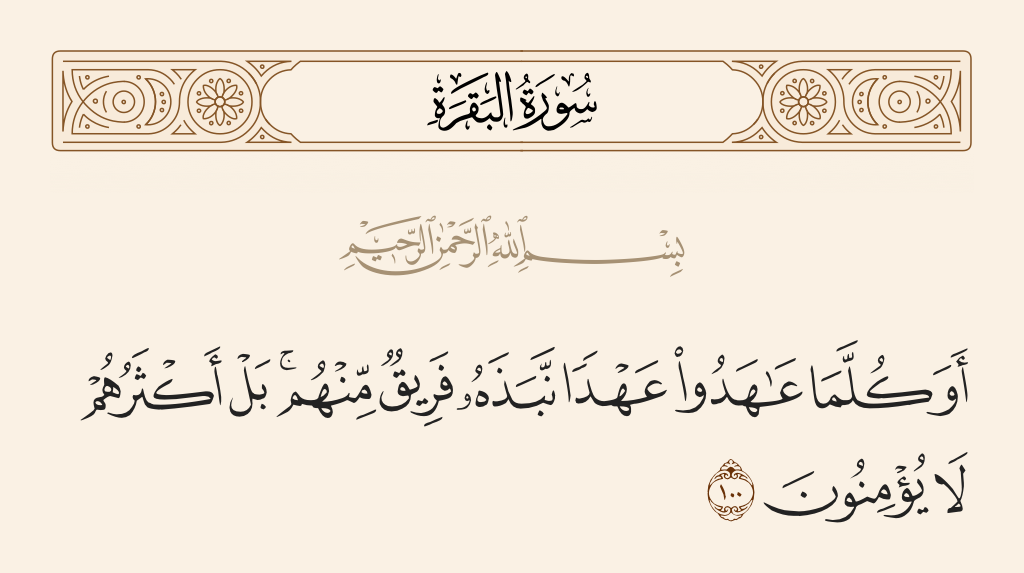 سُورَةُ البَقَرَةِ
بِسْمِ ٱللَّهِ ٱلرَّحْمَٰنِ ٱلرَّحِيمِ
أَوَكُلَّمَا عَٰهَدُوا۟ عَهْدًا نَّبَذَهُۥ فَرِيقٌ مِّنْهُم ۚ بَلْ أَكْثَرُهُمْ
لَا يُؤْمِنُونَ ١٠٠